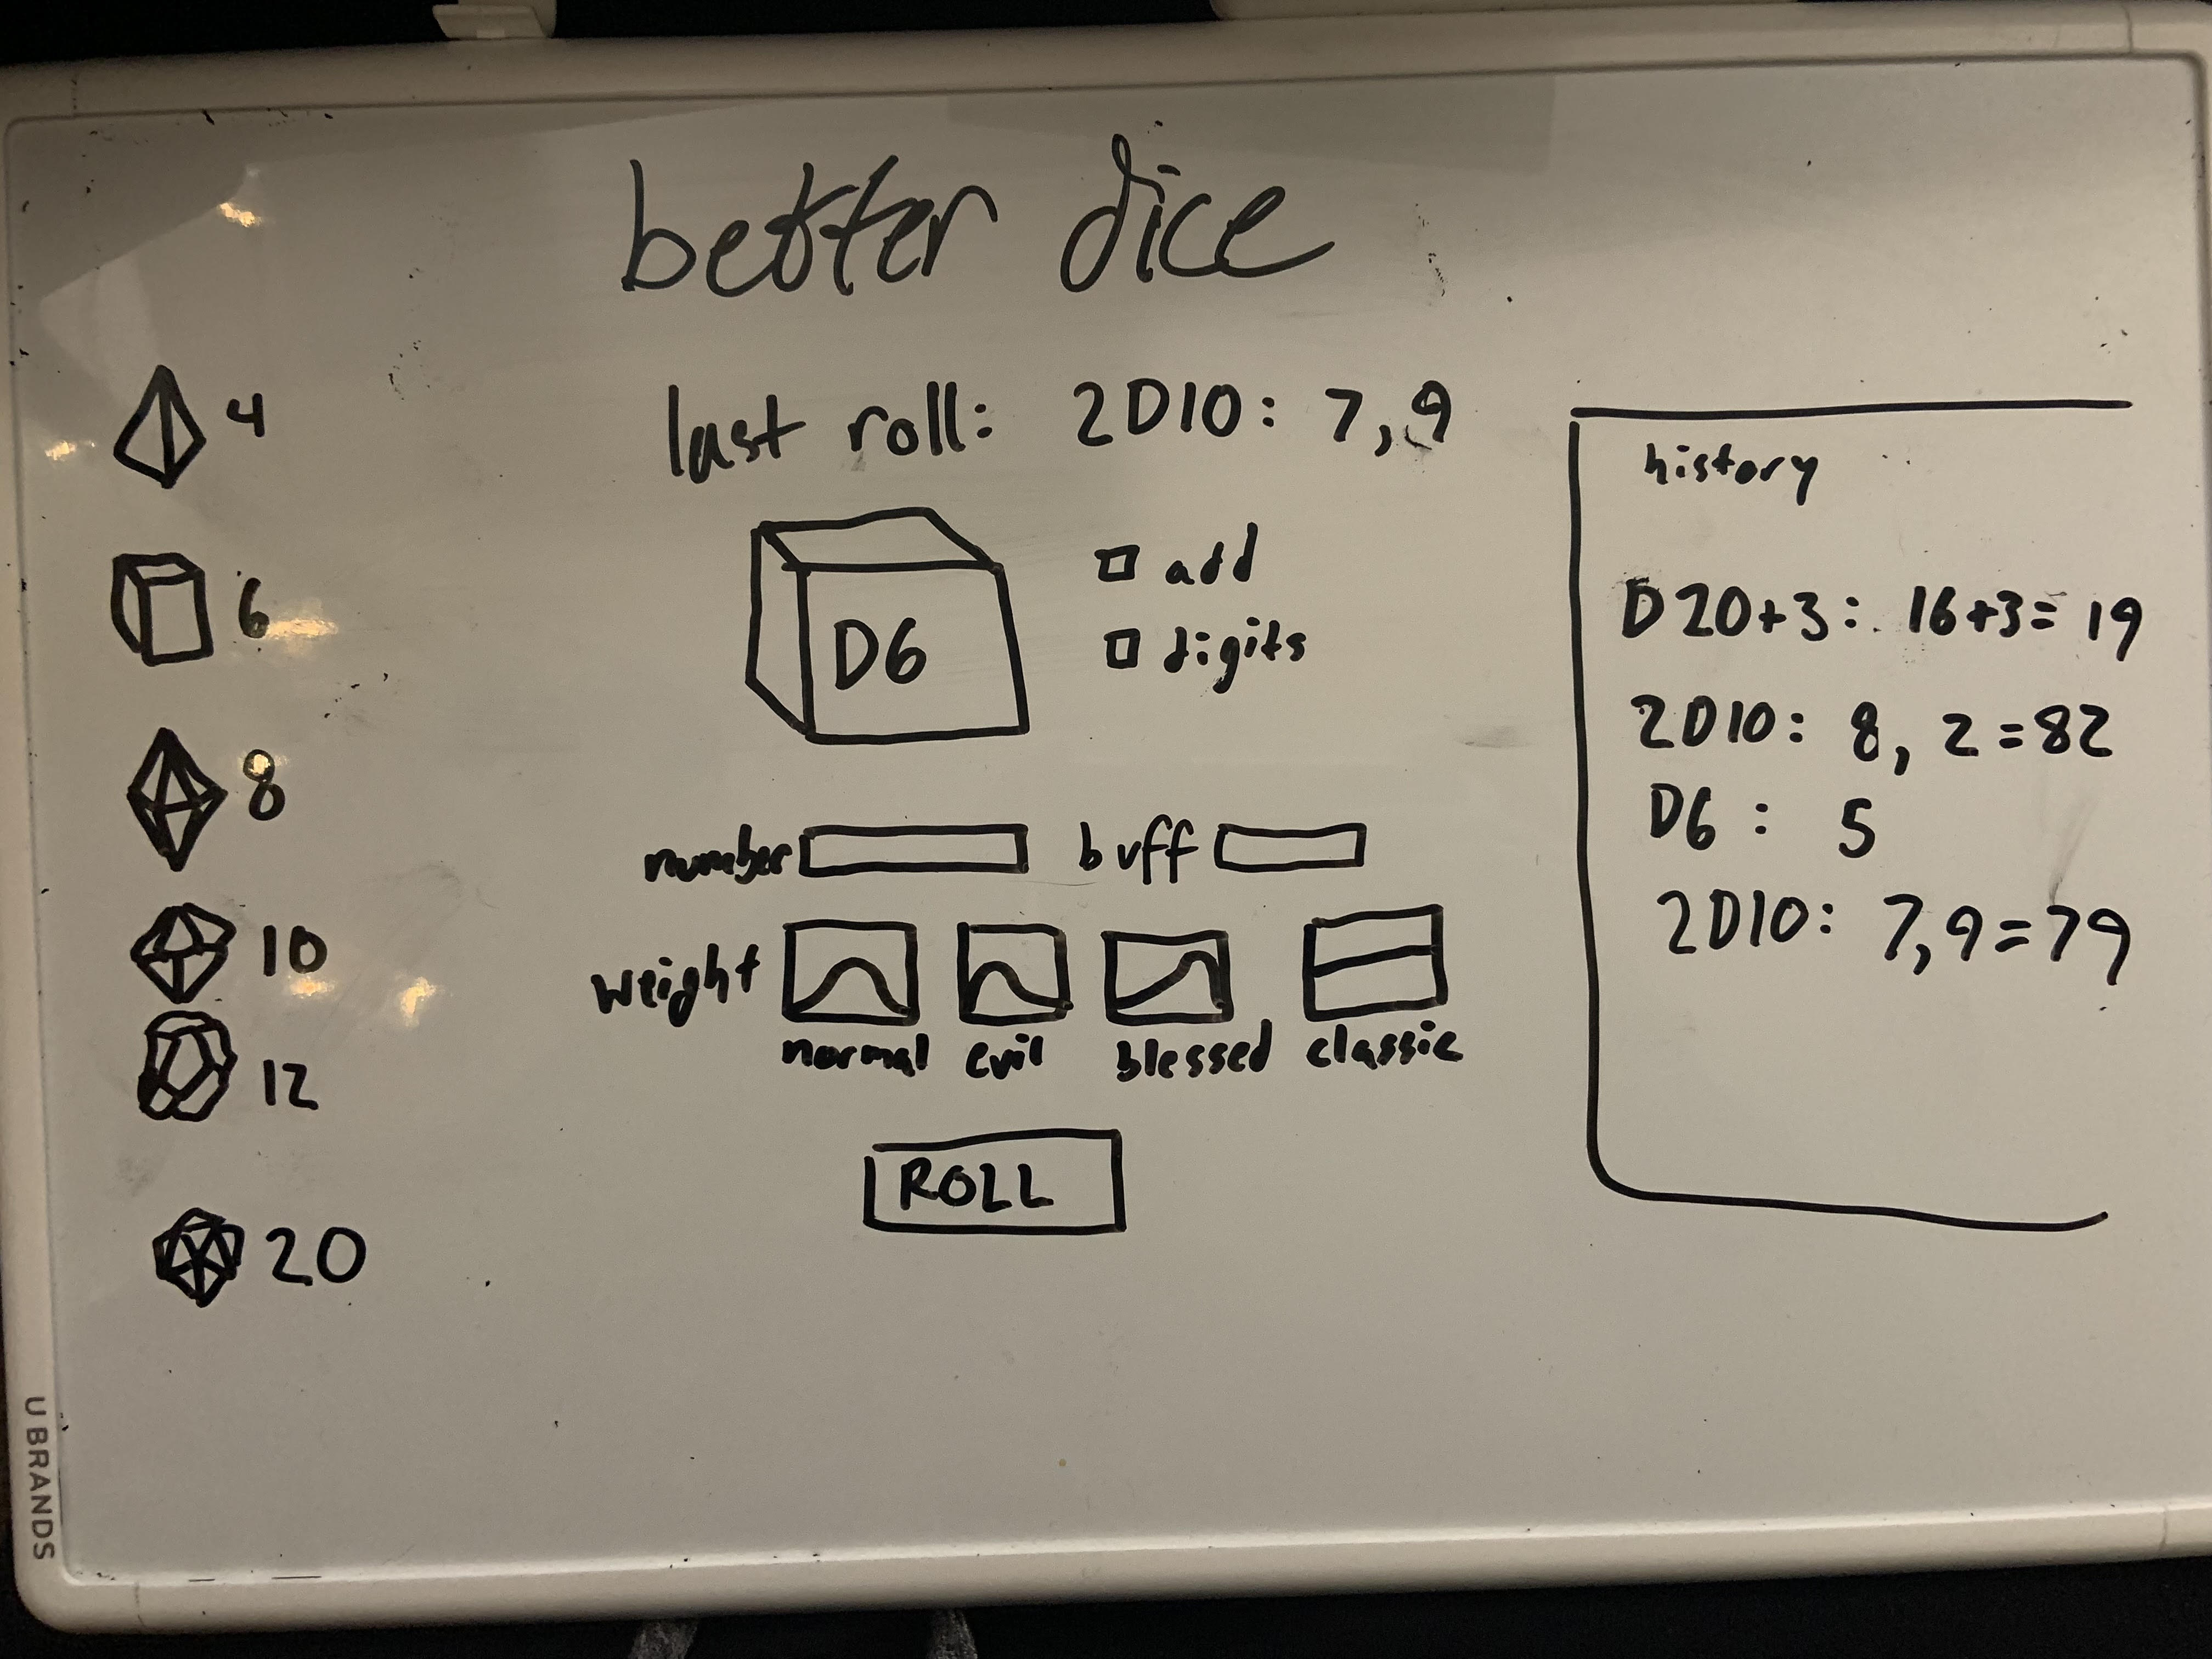 better dice
4
6
8
10
12
20
last roll: 2D10: 7,9
D6
add
digits
number
buff
weight
normal
evil
blessed
classic
ROLL
history
D20+3: 16+3=19
2D10: 8, 2=82
D6: 5
2D10: 7,9=79
U BRANDS